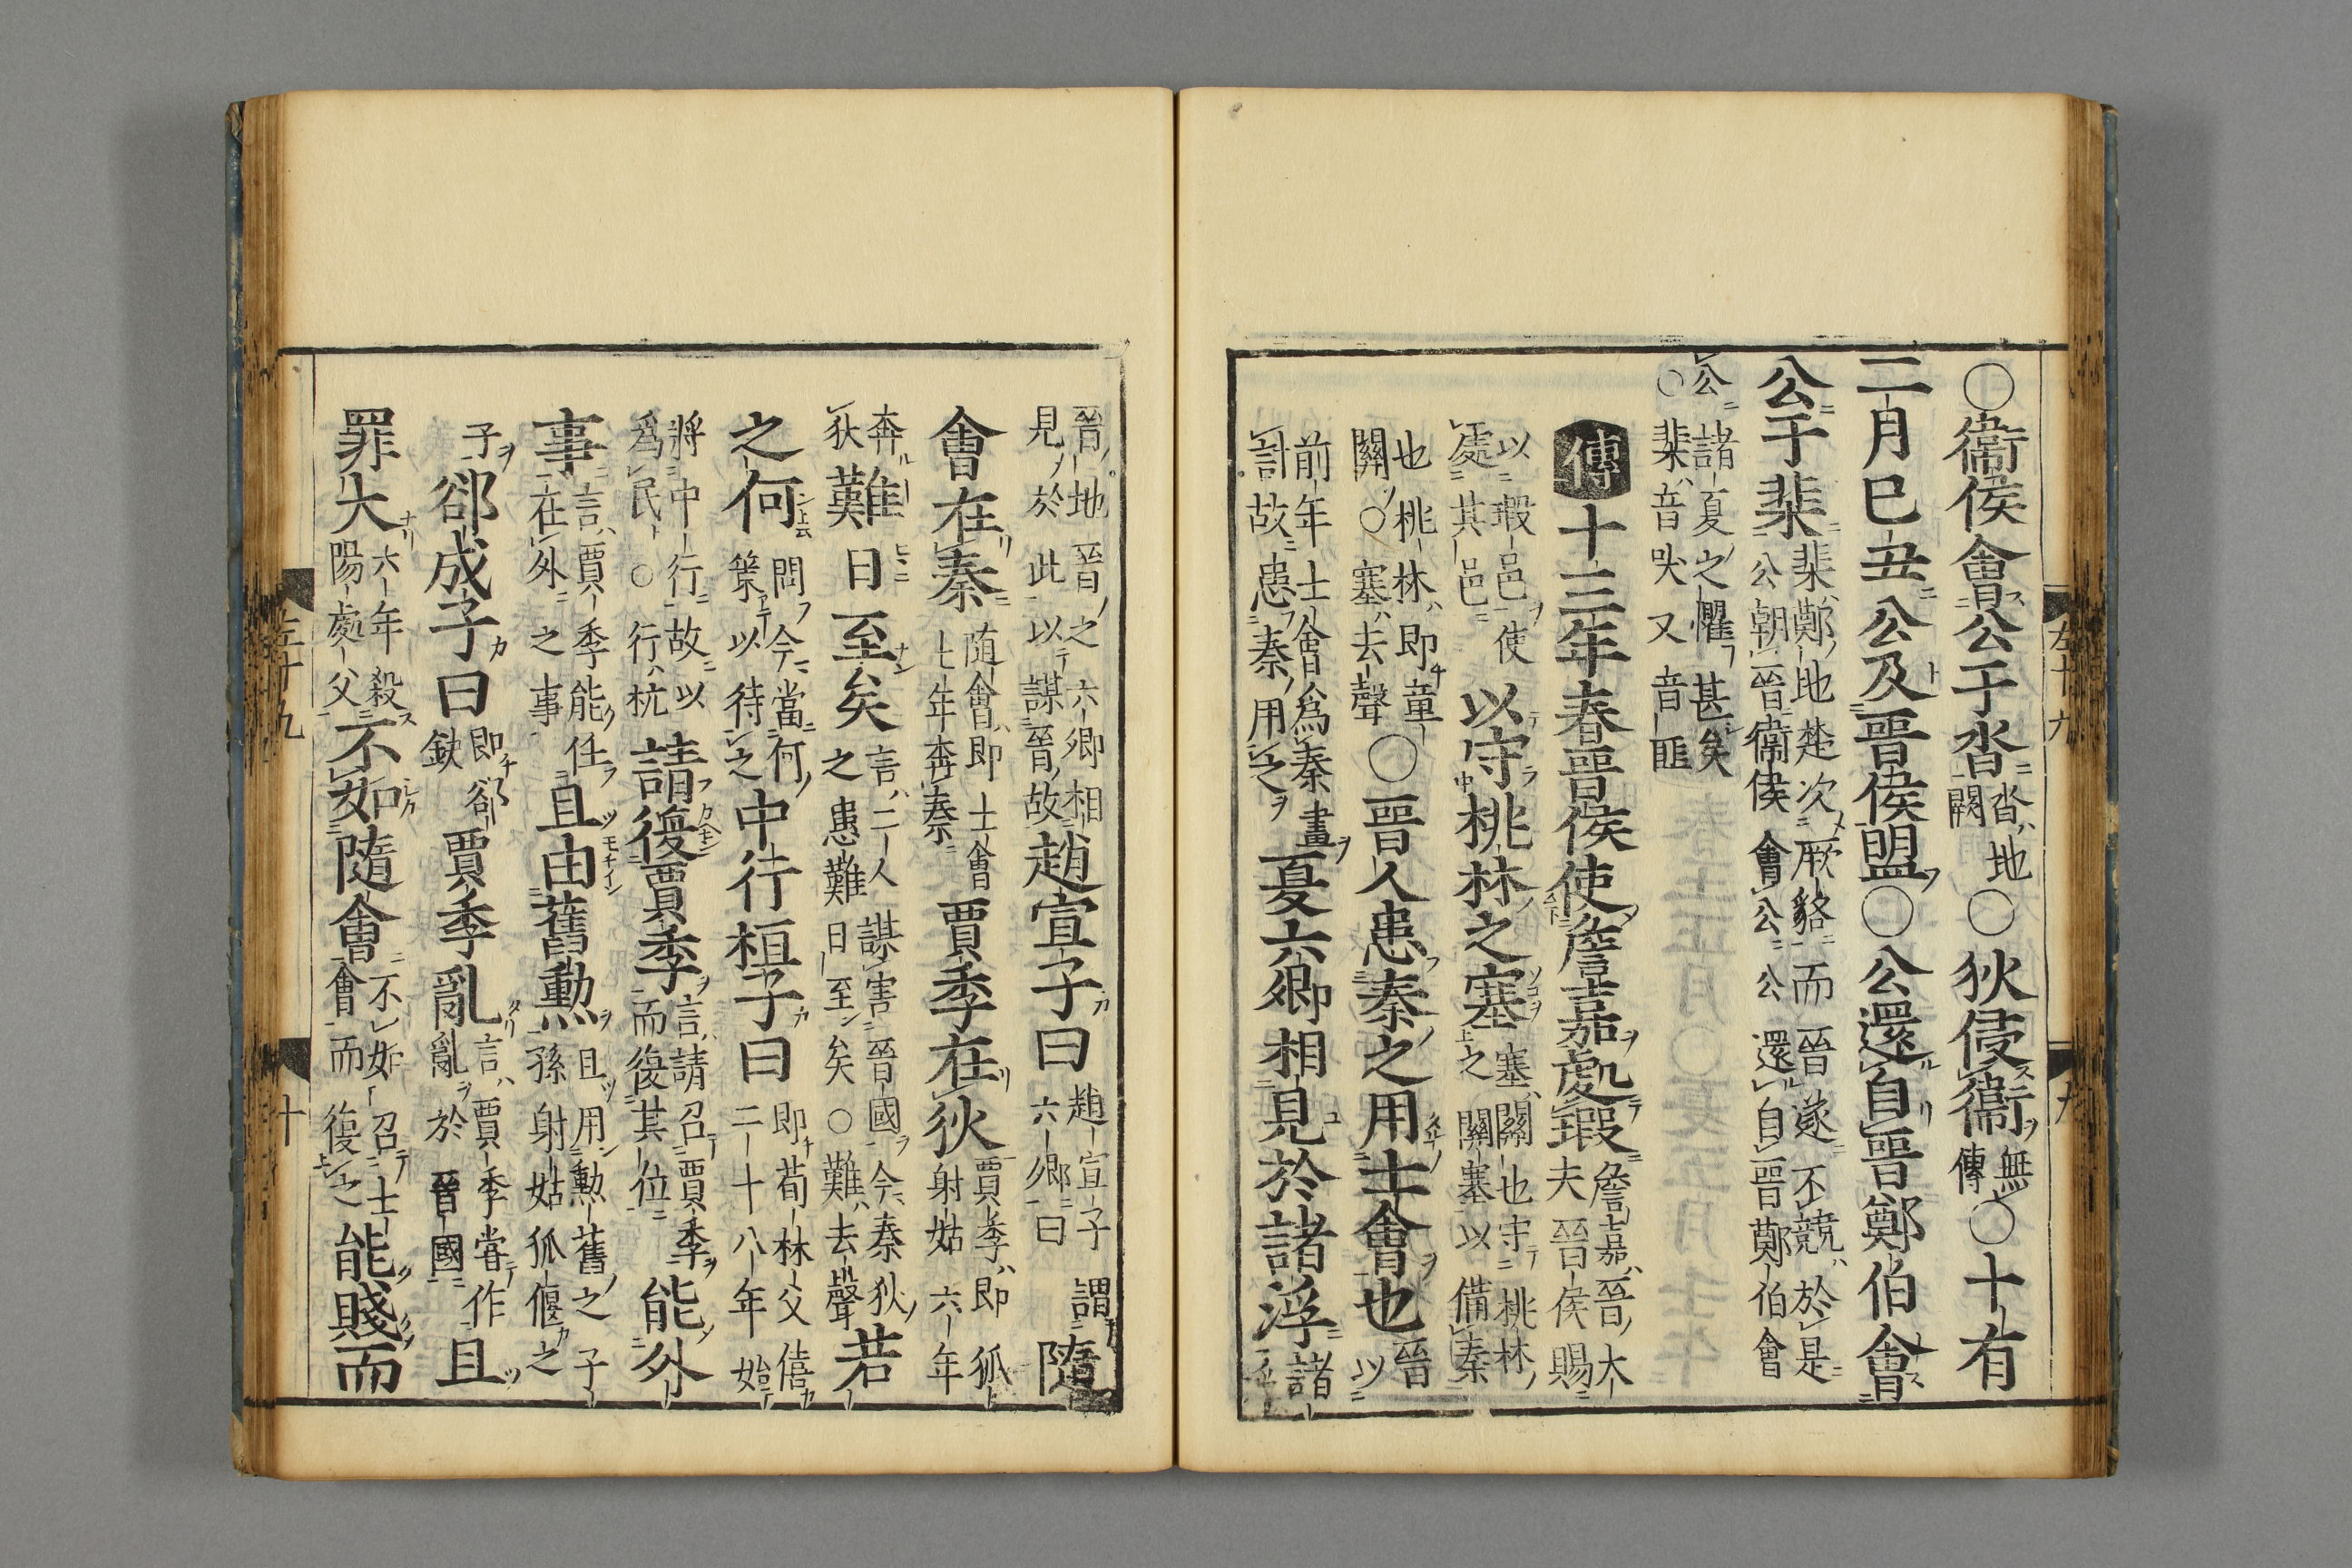 ○衞侯會公于沓沓地闕○狄侵衞無傳○十有
二月己丑公及晋侯盟○公還自晋鄭伯會
公于棐棐鄭地楚次厥貉而晉遂不競於是公朝晉衞侯會公公還自晋鄭伯會
公諸夏之懼甚矣○棐音吠又音匪
傳十三年春晋侯使詹嘉處瑕詹嘉晉大夫晉侯賜
以瑕邑使處其邑以守桃林之塞塞關也守桃林之關塞以備秦
也桃林即童關○塞去聲○晋人患秦之用士會也晉以
前年士會爲秦畫計故患秦用之夏六卿相見於諸浮諸
晉地晉之見於此六卿相以謀晉故趙宣子曰趙宣子謂六卿曰隨
會在秦隨會即士會七年奔秦賈季在狄賈季即狐射姑六年
奔狄難日至矣言二人謀害晉國之患難日至矣今秦狄○難去聲若
之何問今當何策以待之中行桓子曰即荀林父僖二十八年始
將中行故以爲氏○行杭請復賈季言請召賈季而復其位能外
事言賈季能任在外之事且由舊勳且用勲舊之子孫射姑狐偃之
子郤成子曰即郤缺賈季亂言賈季嘗作亂於晉國且
罪大六年殺陽處父不如隨會不如召士會而復之能賤而
左十九
九
左十九
十